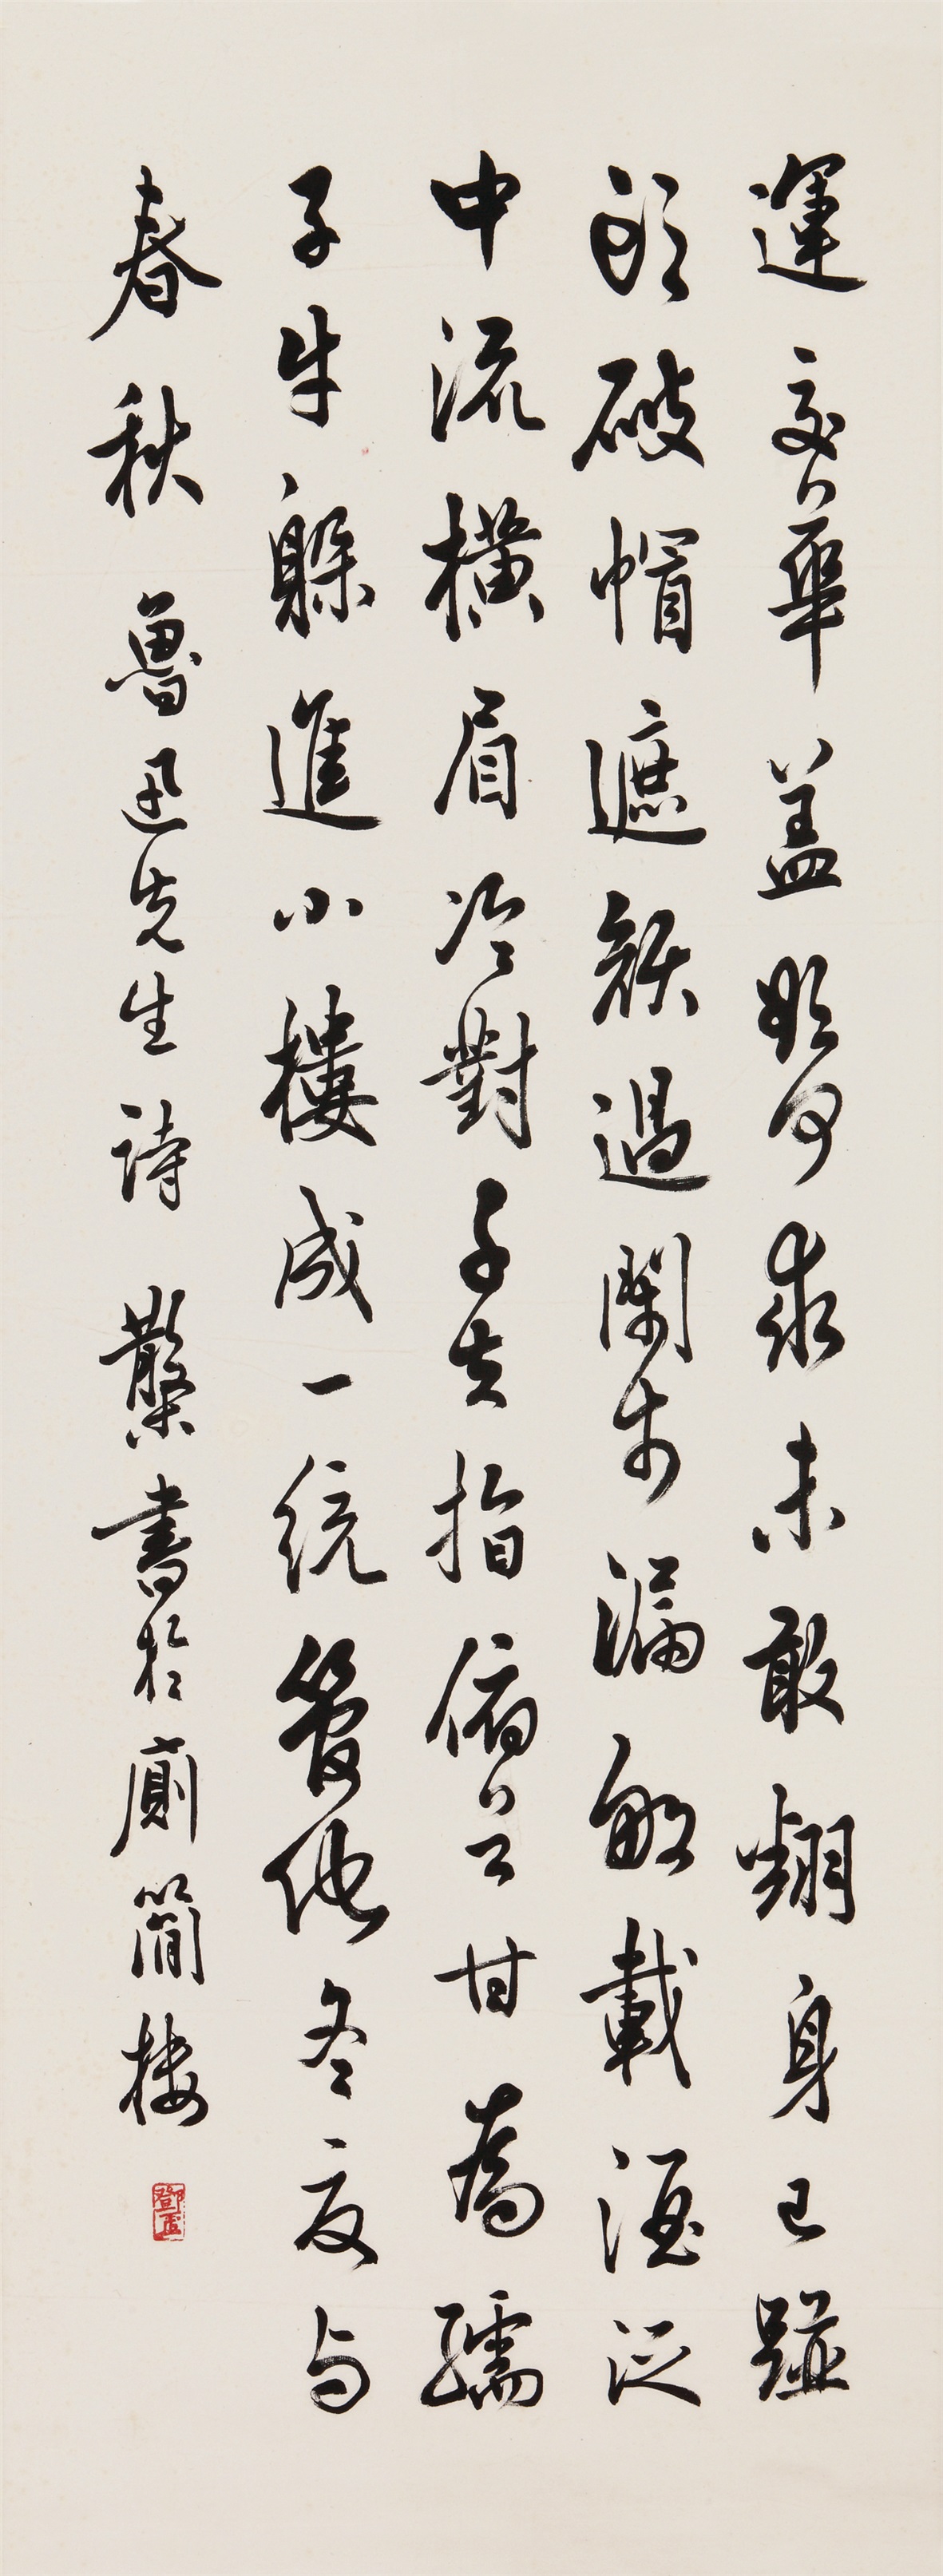 運交華盖欲何求未敢翻身已踫
頭破帽遮顏過鬧市漏船載酒泛
中流橫眉冷對千夫指俯首甘為孺
子牛躲進小樓成一統管他冬夏与
春秋 魯迅先生詩 散木書於廁簡樓
鄧